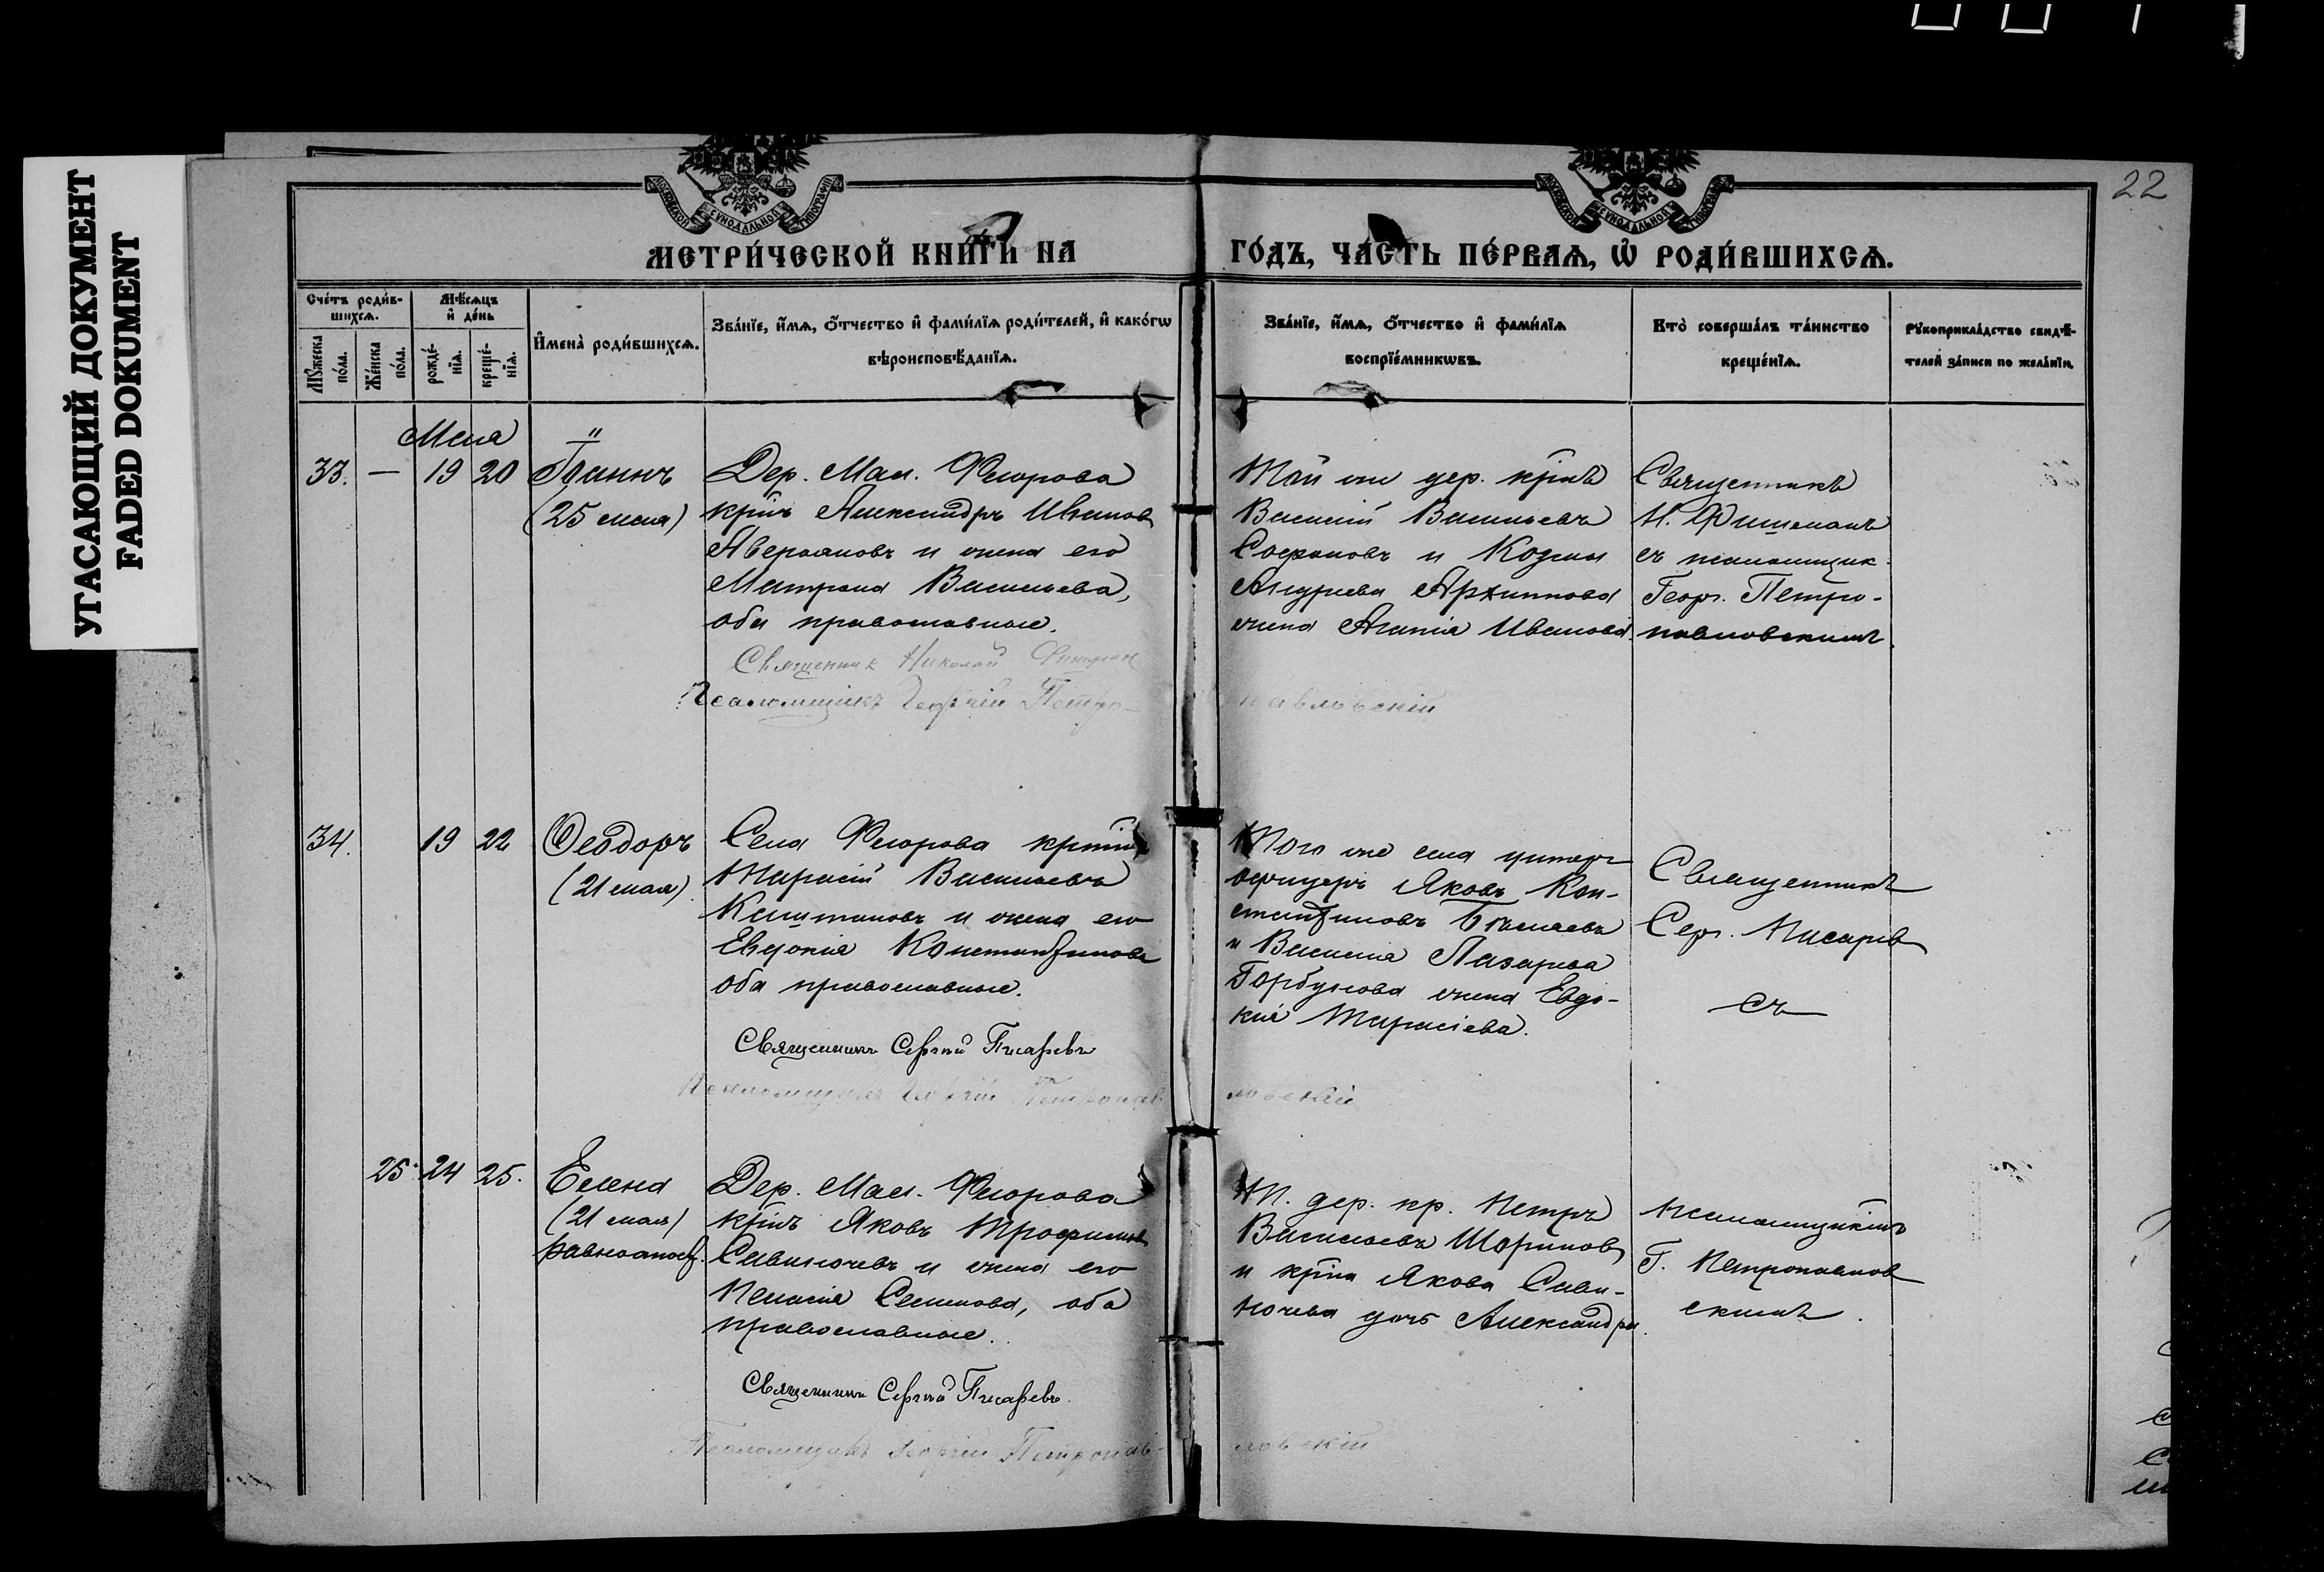 УГАСАЮЩИЙ ДОКУМЕНТ
FADED DOKUMENT
22
МОСКОВСКОЙ СѴНОДАЛЬНОЙ ТИПОГРАФІИ
МОСКОВСКОЙ СѴНОДАЛЬНОЙ ТИПОГРАФІИ
МЕТРИ́ЧЕСКОЙ КНИ́ГИ НА
ГО́ДЪ, ЧА́СТЬ ПЕ́РВАѦ, Ѡ҆ РОДИ́ВШИХСѦ.
Сче́тъ роди́в-
шихсѧ.
Мѣ́сѧцъ
и҆ де́нь
Мꙋ́жеска
по́ла.
Же́нска
по́ла.
рожде́-
нїѧ.
креще́-
нїѧ.
И҆мена̀ роди́вшихсѧ.
Зва́нїе, и҆́мѧ, ѻ҆́тчество и҆ фами́лїѧ роди́телей, и҆ како́гѡ
вѣроисповѣ́данїѧ.
Зва́нїе, и҆́мѧ, ѻ҆́тчество и҆ фами́лїѧ
воспрїе́мникѡвъ.
Кто̀ соверша́лъ та́инство
креще́нїѧ.
Рꙋкоприкла́дство свидѣ́-
телей за́писи по жела́нїю.
Мая
33. — 19 20 Іоаннъ
(25 мая)
Дер. Мал. Ѳеорова
крⷭ҇нъ Александръ Иванов
Аверьяновъ и жена его
Матрона Васильева,
оба православные.
Священник Николай
Псаломщикъ Георгій Петро-
павловскій
Той же дер. крнъ
Василій Васильевъ
Софроновъ и Козмы
Андреева Архипова
жена Агапія Иванова.
Священникъ
Н.
съ псаломщик.
Геор. Петро-
павловскимъ.
34. 19 22 Ѳеодоръ
(21 мая)
Села Ѳеорова
Тарасій Васильевъ
Каштановъ и жена его
Евдокія Константинова
оба православные.
Священникъ Сергій Писаревъ
Псаломщикъ Георгій Петропав
ловскій
Того же села унтеръ
офицеръ Яковъ Кон-
стантиновъ
и Василія Лазарева
Горбунова жена Евдо-
кія Тарасіева.
Священникъ
Серг. Писарев
съ
25. 24 25. Елена
(21 мая)
равноапост.
Дер. Мал. Ѳеорова
крнъ Яковъ Трофимов
Савлючевъ и жена его
Пелагія Семенова, оба
православные.
Священникъ Сергій Писаревъ.
Псаломщикъ Георгій Петропав-
ловскій
Т. дер. кр. Петръ
Васильевъ Шориновъ
и крⷭ҇на Якова Сави-
дочь Александра.
псаломщикомъ
Г. Петропавлов
скимъ.